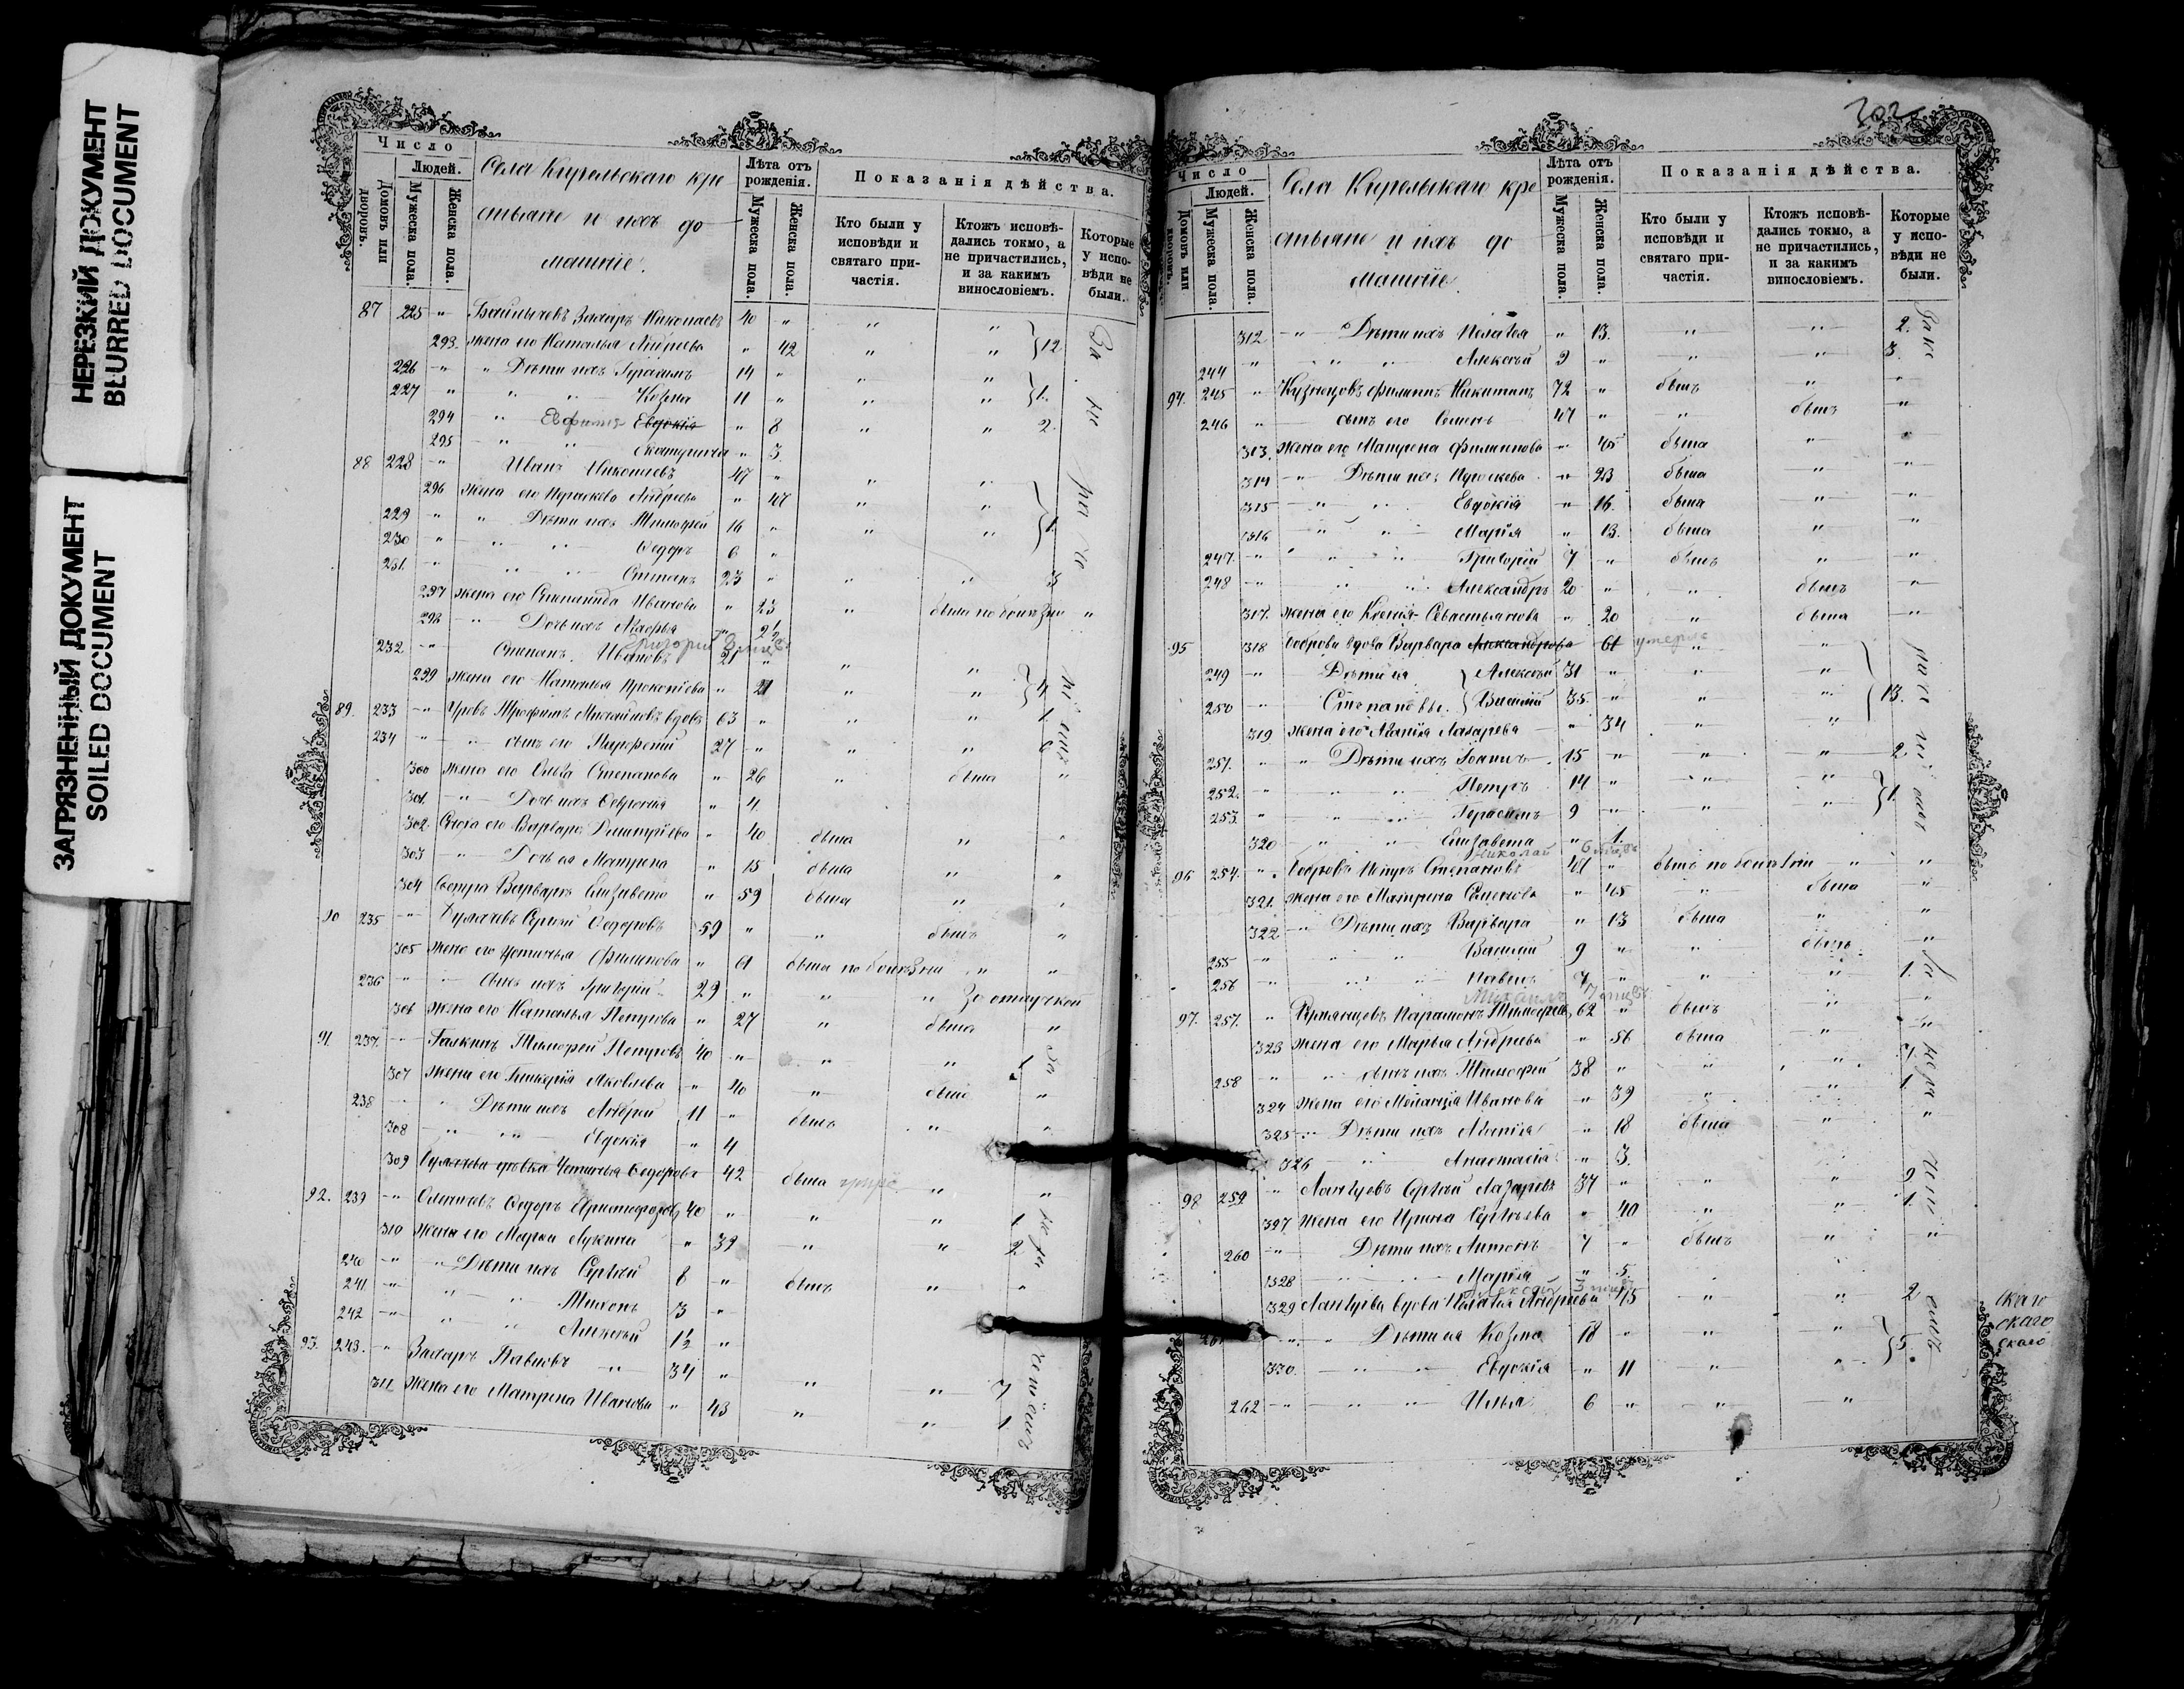 НЕРЕЗКИЙ ДОКУМЕНТ
BLURRED DOCUMENT
ЗАГРЯЗНЕННЫЙ ДОКУМЕНТ
SOILED DOCUMENT
Число
Людей.
Домовъ или дворовъ.
Мужеска пола.
Женска пола.
Села Кигельскаго кре
стьяне и ихъ до
машніе.
Лѣта отъ рожденія.
Мужеска пола.
Женска пола.
Показанія дѣйства.
Кто были у исповѣди и святаго причастія.
Ктожъ исповѣдались токмо, а не причастились, и за какимъ винословіемъ.
Которые у исповѣди не были.
87 225 " Захаръ Николаевъ 40 " " "
293. жена его Наталья Андреева " 42 " " 12
226 " " Дѣти ихъ Герасимъ 14 " " "
227 " " " Козма 11 " " " 1.
294 " Евфимія Евдокія " 8 " " 2.
295 " " Екатерина " 3.
88 228 " Иванъ Николаевъ 47 " " "
296 жена его Параскева Андреева " 47 " "
229 " " Дѣти ихъ Тимофей 16 " " " 1.
230 " " " Ѳедоръ 6 "
231. " " " Степанъ 23 " " " 3
297 жена его Степанида Ивановa " 23 " была по болѣзни "
298 " Дочь ихъ Марѳа " 2½
Григорій
232 " Степанъ Ивановъ 21 " " "
299 жена его Наталья Прокопіева " 21 " " 4
89. 233 " Трофимъ Михайловъ вдовъ 63 " " " 1.
234 " " сынъ его Парфеній 27 " " " 6
300 жена его Ольга Степанова " 26 " была "
301. " Дочь ихъ Ѳевронія " 4
302 Сноха его Варвара Димитріева " 40 была " "
303 " Дочь ея Матрена " 15 была " "
304 Сестра Варвары Елизавета " 59 была " "
90 235 " Сергѣй Ѳедоровъ 59 " " былъ "
305 жена его Устинья Филипова " 61 была по болѣзни " "
236 " " сынъ ихъ Григорій 29 " " " За отлучкой
306 жена его Наталья Петрова " 27 " была "
91. 237. " Галкинъ Тимофей Петровъ 40 " " " 1
307 жена его Гликерія Яковлева " 40 " была "
238 " Дѣти ихъ Андрей 11 " былъ " "
308 " " Евдокія " 4
309 Устинья Ѳедорова 42 была " "
92. 239 " Ѳедоръ Христофоровъ 40 " " " 1
310 жена его Марѳа Лукина " 39 " " 2.
240 " " Дѣти ихъ Сергѣй 8 " былъ " "
241. " " " Тихонъ 3 "
242 " " " Алексѣй 1½ "
93. 243. " Захаръ Павловъ " 34 " " " 7
311 жена его Матрена Иванова " 43 " " 1
За не ра че ніемъ
За
не ра
ченіемъ
Число
Людей.
Домовъ или дворовъ.
Мужеска пола
Женска пола.
Села Кигельскаго кре
стьяне и ихъ до
машніе.
Лѣта отъ рожденія.
Мужеска пола.
Женска пола.
Показанія дѣйства.
Кто были у исповѣди и святаго причастія.
Ктожъ исповѣдались токмо, а не причастились, и за какимъ винословіемъ.
Которые у исповѣди не были.
312 " Дѣти ихъ Пелагея " 13. " " 2.
244 " " " Алексѣй 9 " " " 3.
94. 245 " Кузнецовъ Филипъ Никитинъ 72 " былъ " "
246 " сынъ его Семенъ 47 " " былъ "
313. жена его Матрона Филипова " 45 была " "
314 " Дѣти ихъ Параскева " 23 была " "
315 " " Евдокія " 16. была " "
316 " " Марія " 13. была " "
247. " " " Григорій 7 " былъ " "
248 " " " Александръ 20 " " былъ "
317. жена его Ксенія Севастьянова " 20 " была "
95 318 Боброва вдова Варвара Александрова 61 умерла " "
249 " Дѣти ея Алексѣй 31 " " "
250 " Степановы. Василій 35. " " " 13.
319 жена его Лазарева " 34 " "
251. " " Дѣти ихъ Іоаннъ 15 " " " 2.
252. " " " Петръ 14 " " "
253. " " " Герасимъ 9 " " " 1.
320 " " Елизавета " 1.
Николай 6 мѣсяц.
96 254. " Бобровъ Петръ Степановъ 41 " былъ по болѣзни " "
321. жена его Матрена Семенова " 45 " была "
322 " Дѣти ихъ Варвара " 13 была " "
255 " " " Василій 9 " " былъ "
256 " " " Павелъ 7 " " " 1.
Михаилъ 7 мѣсяц.
97. 257. " Румянцевъ Парамонъ Тимофеевъ 62 " былъ " "
323 жена его Марья Андреева " 56 была " "
258 " " сынъ ихъ Тимофей 38 " " " 7.
324 жена его Меланія Иванова " 39 " " 1.
325 " Дѣти ихъ " 18 была " "
326 " " Анастасія " 3.
98 259 " Сергѣй Лазаревъ 37 " " " 9
327 жена его Ирина Сергѣева " 40 " " 1.
260 " Дѣти ихъ Антонъ 7 " былъ " "
328 " " Марія " 5.
Алексѣй 3 мѣсяц.
329 вдова Пелагія Андреева " 45 " " 2
261 " " Дѣти ея Козма 18 " " "
330. " " Евдокія " 11 " " 5.
262 " " " Илья 6 " " "
скаго
скаго
скаго